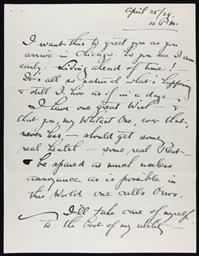 April 25/29.
4 P.M.
I want this to greet you as you
arrive in Chicago so you see I am
early - living ahead of time!
It's all so natural what's happening
& still I live as if in a daze
I have one great Wish -
that you, my Whitest One, over that,
never less - should get some
real health - some real Rest -
be spared as much useless
annoyance as is possible in
this World one calls Ours.
I'll take care of myself
to the best of my ability -